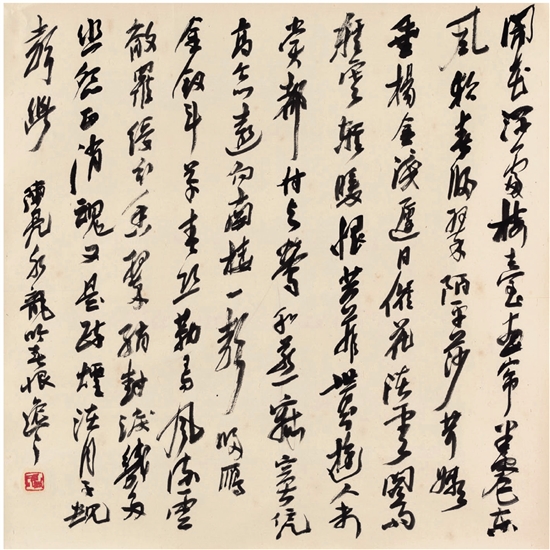 鬧花深處樓臺畫帘半卷東
風軟春歸翠陌平莎茸嫩
垂楊金淺遲日催花淡雲閣雨
輕寒輕暖恨芳菲世界遊人未
賞都付與鶯和燕寂寞憑
高念遠向南樓一聲歸雁
金釵斗草青絲勒馬風流雲
散羅綬分香翠綃封淚幾多
幽怨正消魂又是疏煙淡月子規
聲斷
陳亮水龍吟春恨